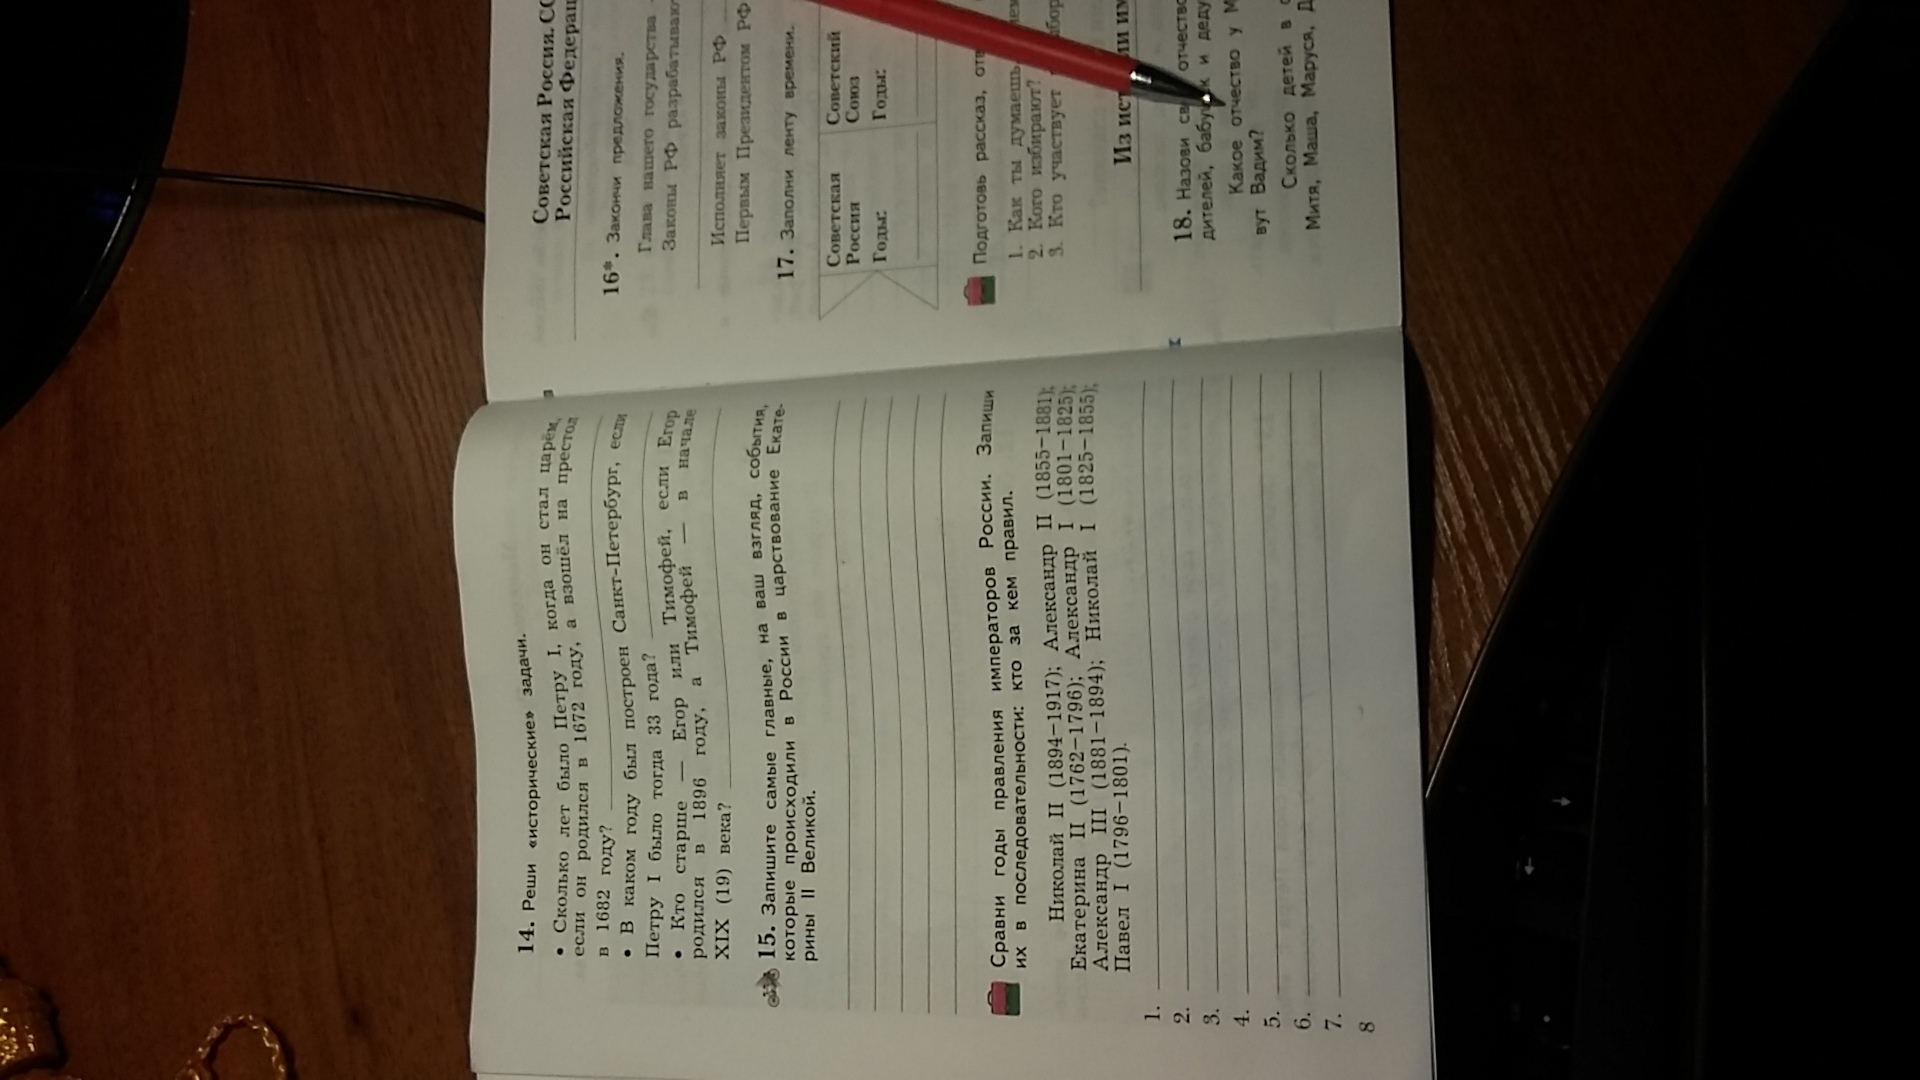 14. Реши «исторические» задачи.
• Сколько лет было Петру I, когда он стал царём,
если он родился в 1672 году, а взошёл на престол
в 1682 году?
• В каком году был построен Санкт-Петербург, если
Петру I было тогда 33 года?
• Кто старше — Егор или Тимофей, если Егор
родился в 1896 году, а Тимофей — в начале
XIX (19) века?
15. Запишите самые главные, на ваш взгляд, события,
которые происходили в России в царствование Екате-
рины II Великой.
Сравни годы правления императоров России. Запиши
их в последовательности: кто за кем правил.
Николай II (1894–1917); Александр II (1855–1881);
Екатерина II (1762–1796); Александр I (1801–1825);
Александр III (1881–1894); Николай I (1825–1855);
Павел I (1796–1801).
1.
2.
3.
4.
5.
6.
7.
8
Советская Россия.
Российская
16*. Закончи предложения.
Глава нашего государства
Законы РФ разрабатывают
Исполняет законы РФ
Первым Президентом РФ
17. Заполни ленту времени.
Советская Россия
Годы:
Советский Союз
Годы:
Подготовь рассказ,
1. Как ты думаешь,
2. Кого избирают?
3. Кто участвует
Из
18. Назови отчество
дителей, и
Какое отчество у
вут Вадим?
Сколько детей в
Митя, Маша, Маруся,